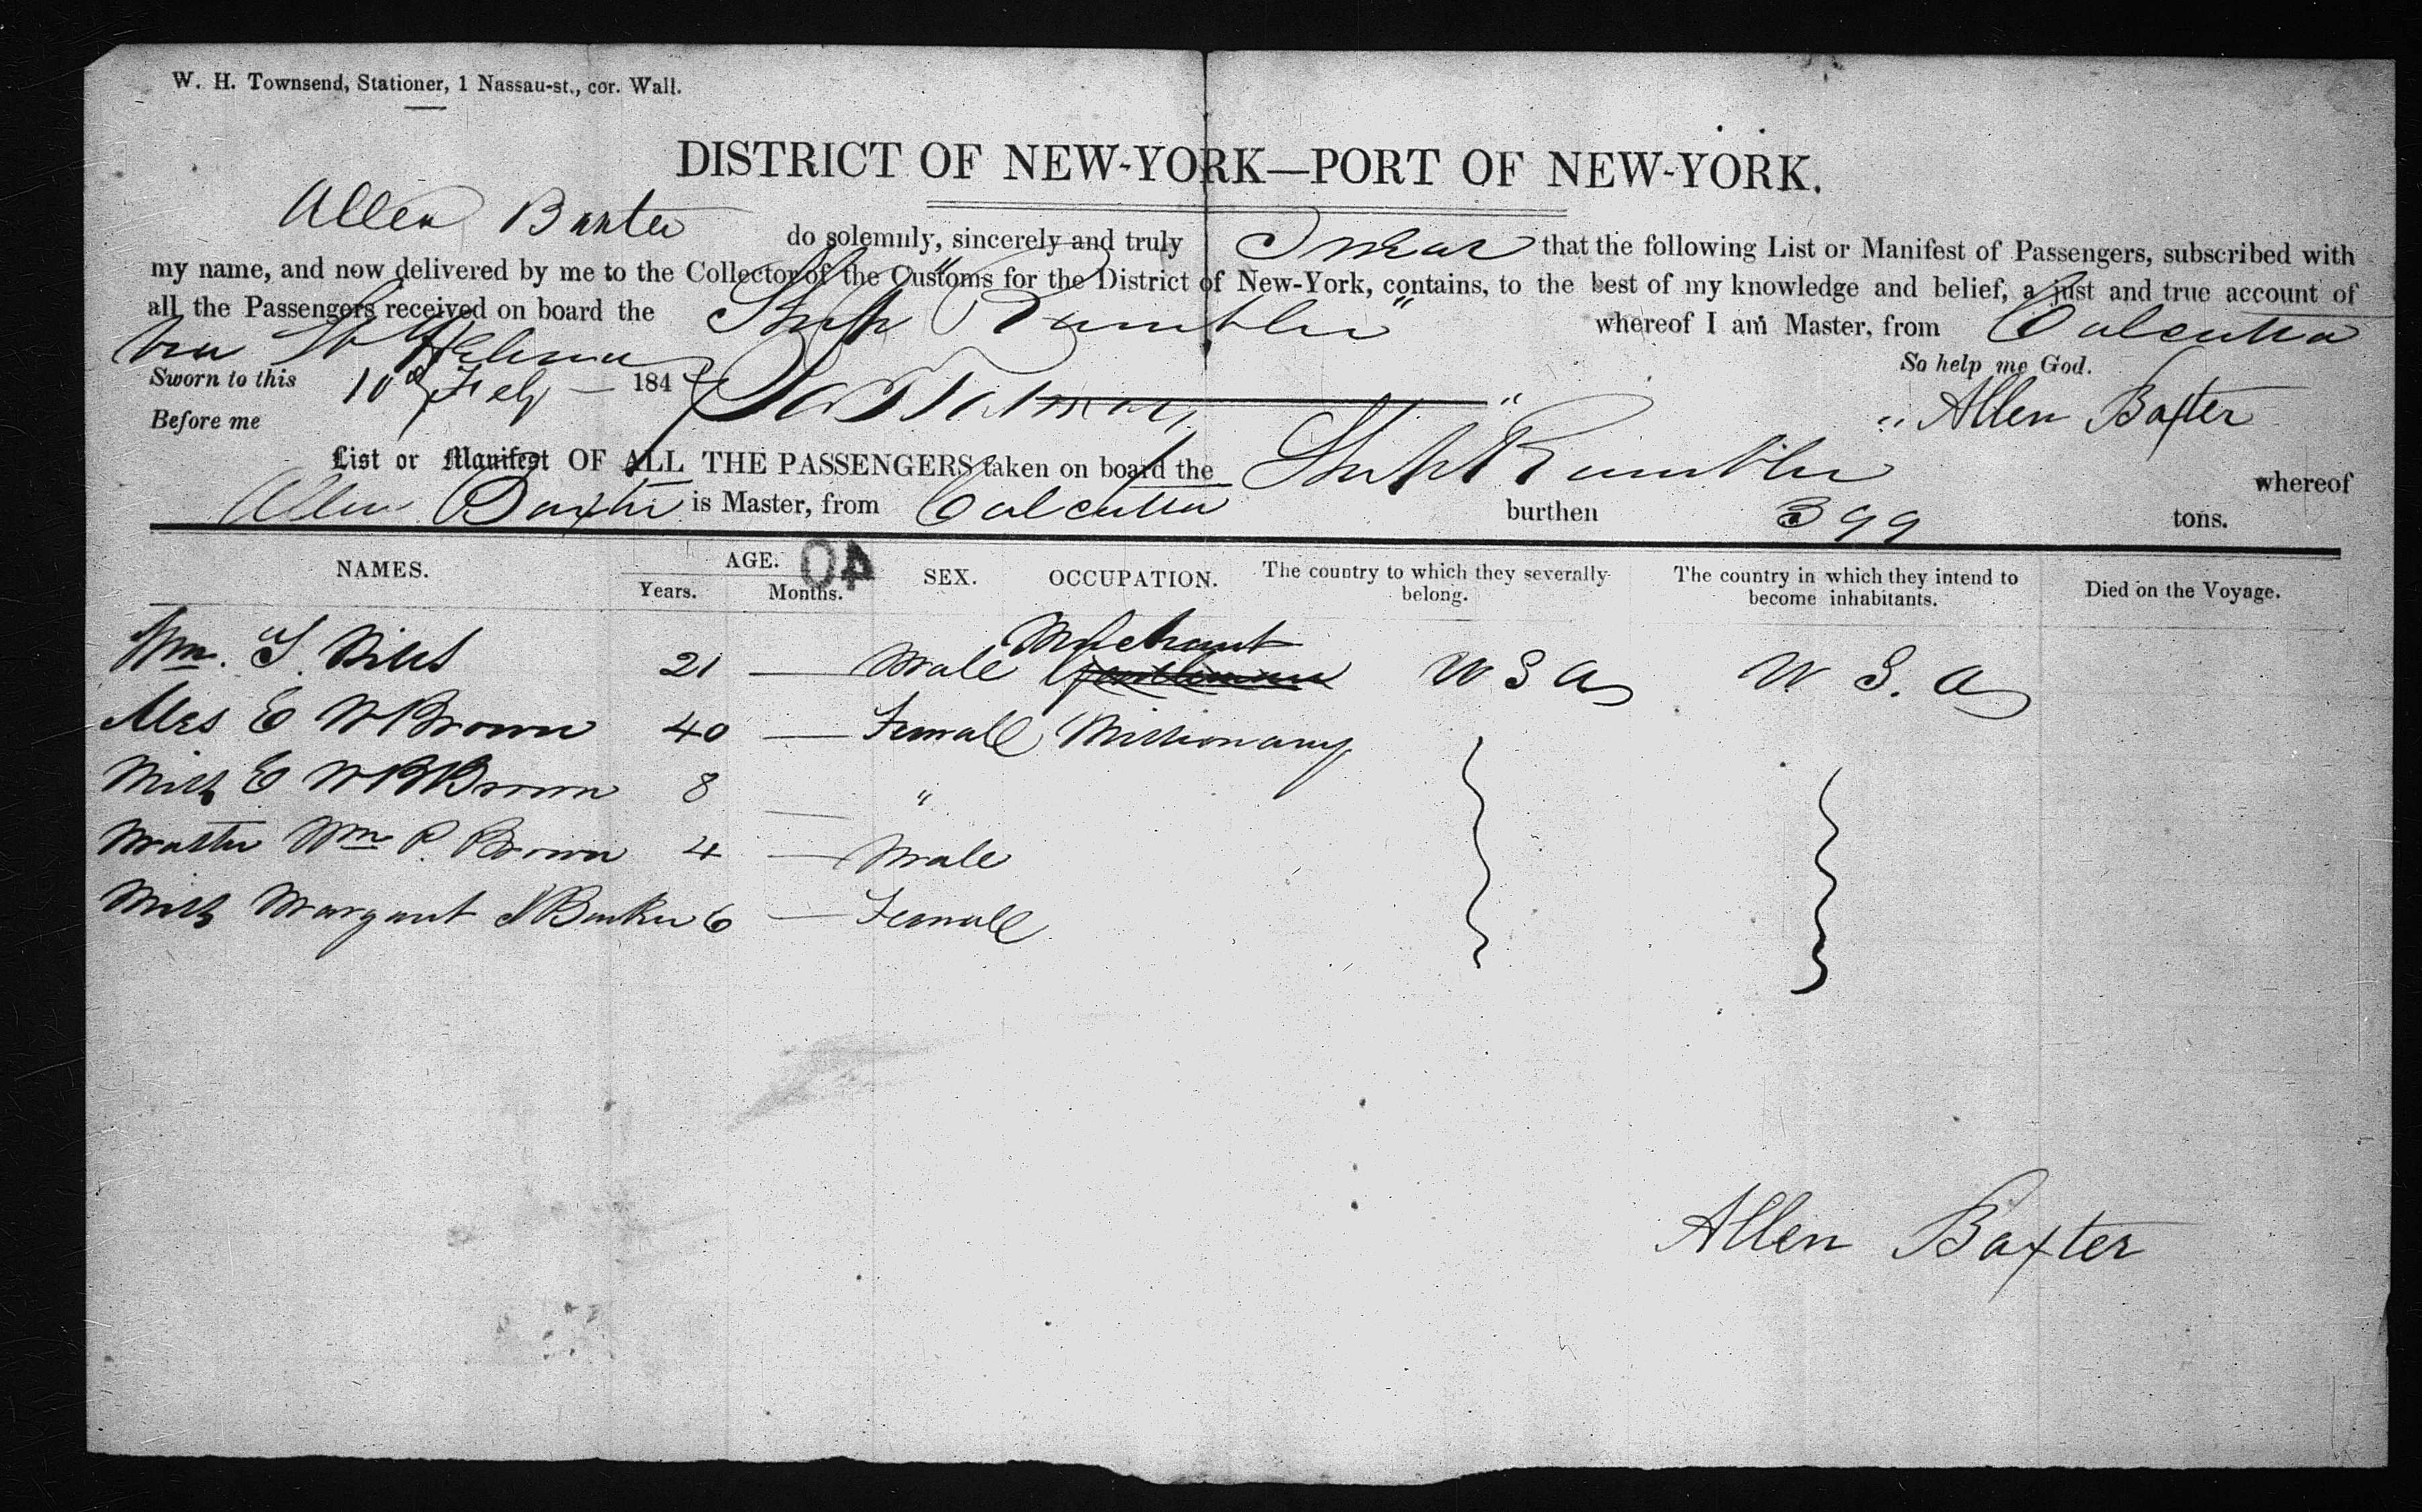 W. H. Townsend, Stationer, 1 Nassau-st., cor. Wall.
DISTRICT OF NEW-YORK—PORT OF NEW-YORK.
Allen Baxter do solemnly, sincerely and truly Swear that the following List or Manifest of Passengers, subscribed with
my name, and now delivered by me to the Collector of the Customs for the District of New-York, contains, to the best of my knowledge and belief, a just and true account of
all the Passengers received on board the Ship "Rambler" whereof I am Master, from Calcutta
via St Helena
So help me God.
Sworn to this 10th Feby 184
Before me
" Allen Baxter
List or Manifest OF ALL THE PASSENGERS taken on board the Ship Rambler whereof
Allen Baxter is Master, from Calcutta burthen 399 tons.
40
NAMES. AGE. SEX. OCCUPATION. The country to which they severally belong. The country in which they intend to become inhabitants. Died on the Voyage.
Years. Months.
Merchant
Wm. S. Niles 21 — Male Gentleman U S A U. S. A
Mrs E W Brown 40 — Female Missionary
Miss E W B Brown 8 — "
Master Wm P. Brown 4 — Male
Miss Margaret Barker 6 — Female
Allen Baxter